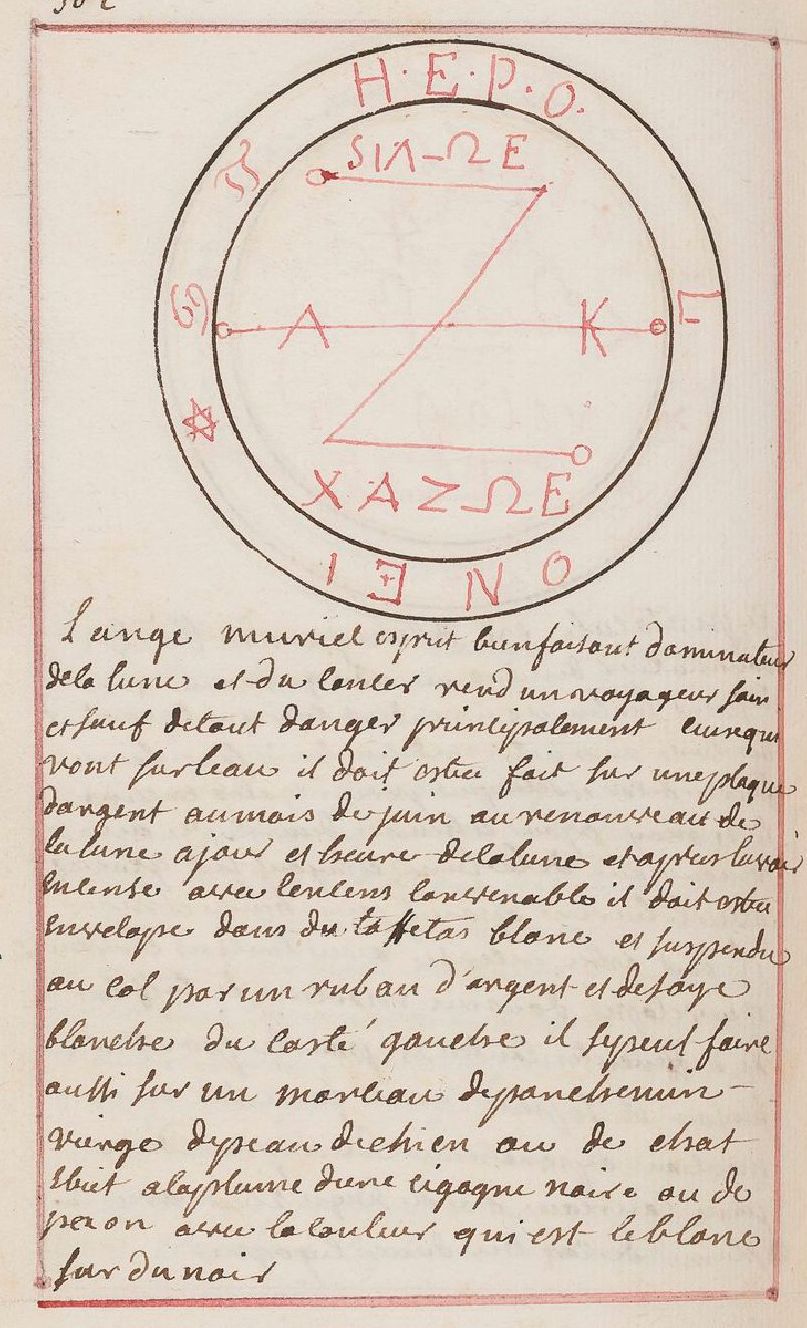 H·E·P·O·
SIΛ-ΩE
L
A K
XAZΩE
ONEI
L'ange muriel esprit bienfaisant dominateur
dela lune et du cancer rend un voyageur sain
et sauf detout danger principalement ceux qui
vont sur leau il doit estre fait sur une plaque
dargent aumois de juin au renouveau de
la lune a jour et heure dela lune et apres lavoir
encense avec lencens convenable il doit estre
envelope dans du taffetas blanc et suspendu
au col par un ruban d'argent et de soye
blanche du costé gauche il sypeut faire
aussi sur un morceau de parchemin
vierge de peau de chien ou de chat
a la plume dune cigogne noire ou de
paon avec la couleur qui est le blanc
sur du noir